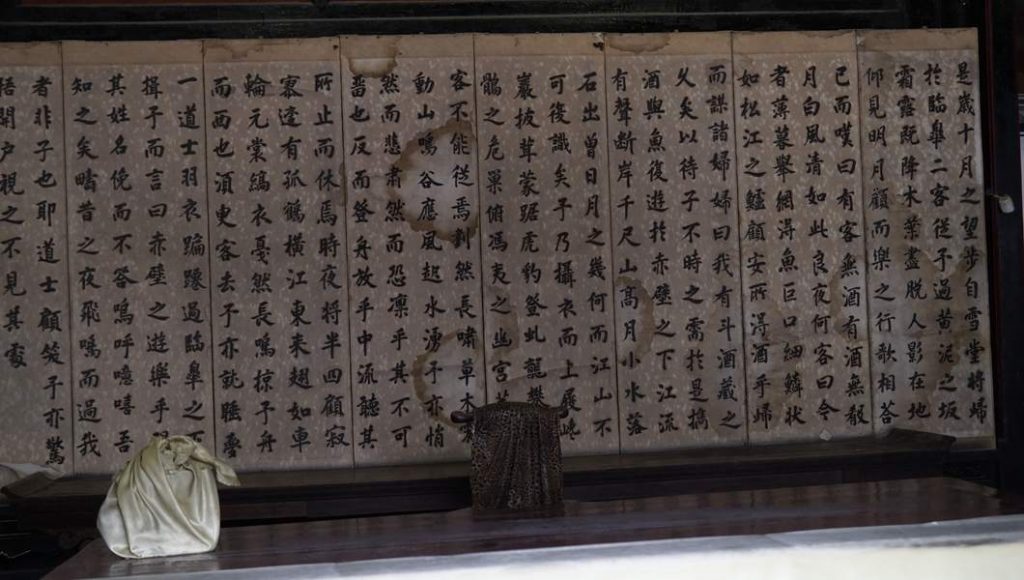 是歲十月之望步自雪堂將歸
於臨皋二客從予過黃泥之坂
霜露既降木葉盡脫人影在地
仰見明月顧而樂之行歌相荅
已而嘆曰有客無酒有酒無殽
月白風清如此良夜何客曰今
者薄暮舉網得魚巨口細鱗狀
如松江之鱸顧安所得酒乎歸
而謀諸婦婦曰我有斗酒藏之
久矣以待子不時之需於是攜
酒與魚復遊於赤壁之下江流
有聲斷岸千尺山高月小水落
石出曾日月之幾何而江山不
可復識矣予乃攝衣而上履巉
巖披茸蒙踞虎豹登虬龍攀
鶻之危巢俯馮夷之幽宮
客不能從焉劃然長嘯草木震
動山鳴谷應風起水湧予亦悄
然而悲肅然而恐凜乎其不可
留也反而登舟放乎中流聽其
所止而休焉時夜將半四顧寂
寥適有孤鶴橫江東來翅如車
輪元裳縞衣戛然長鳴掠予舟
而西也須臾客去予亦就睡夢
一道士羽衣蹁躚過臨皋之下
揖予而言曰赤壁之遊樂乎
其姓名俛而不答嗚呼噫嘻吾
知之矣疇昔之夜飛鳴而過我
者非子也耶道士顧笑予亦驚
悟開戶視之不見其處